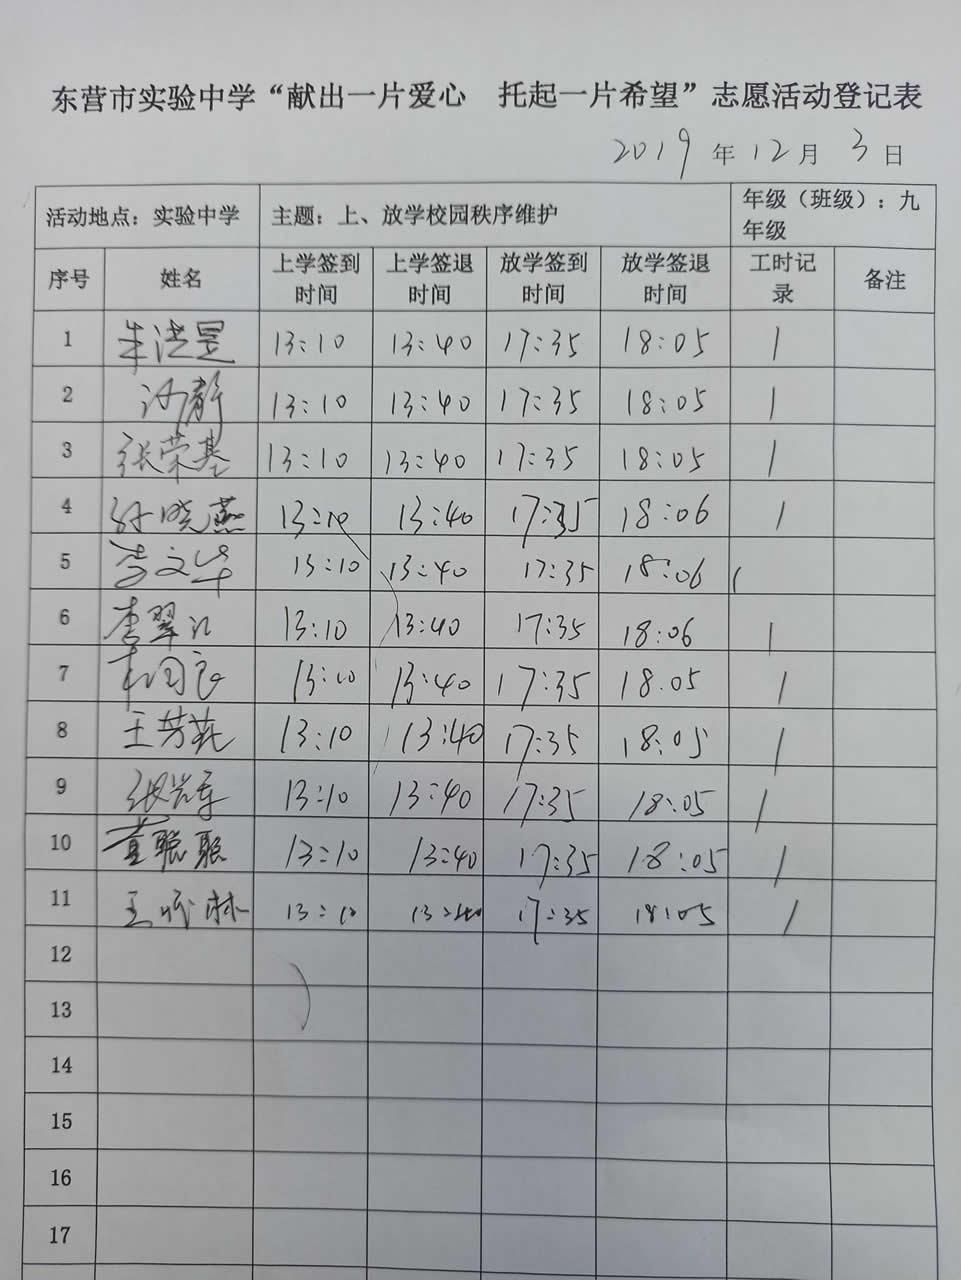 东营市实验中学“献出一片爱心 托起一片希望”志愿活动登记表
2019年12月3日
活动地点：实验中学 主题：上、放学校园秩序维护 年级（班级）：九年级
序号 姓名 上学签到时间 上学签退时间 放学签到时间 放学签退时间 工时记录 备注
1 朱洪昱 13:10 13:40 17:35 18:05 1
2 静 13:10 13:40 17:35 18:05 1
3 张荣基 13:10 13:40 17:35 18:05 1
4 孙晓燕 13:10 13:40 17:35 18:06 1
5 李文华 13:10 13:40 17:35 18:06 1
6 李翠江 13:10 13:40 17:35 18:06 1
7 13:10 13:40 17:35 18.05 1
8 王芳 13:10 13:40 17:35 18:05 1
9 张 13:10 13:40 17:35 18:05 1
10 董聪聪 13:10 13:40 17:35 18:05 1
11 王 琳 13:10 13:40 17:35 18:05 1
12
13
14
15
16
17